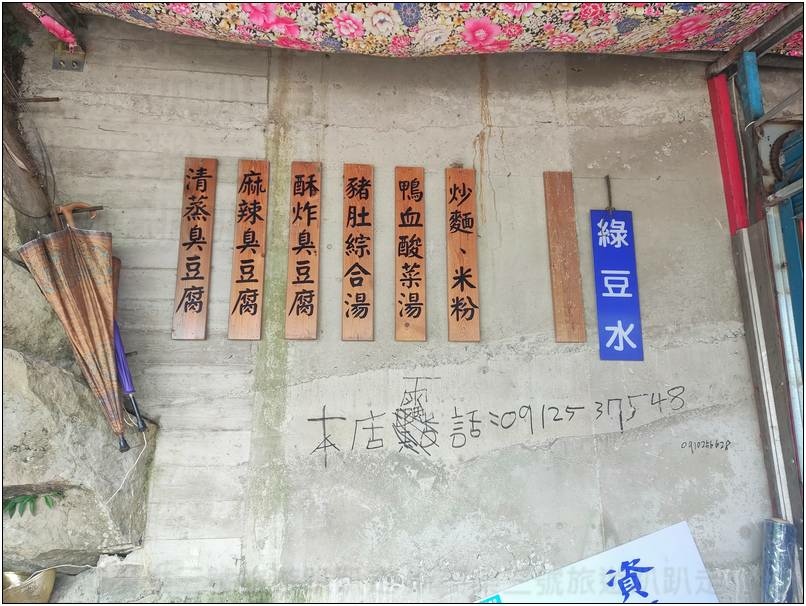 清蒸臭豆腐
麻辣臭豆腐
酥炸臭豆腐
豬肚綜合湯
鴨血酸菜湯
炒麵、米粉
綠豆水
本店 話:0912537548
資
號旅遊趴趴走